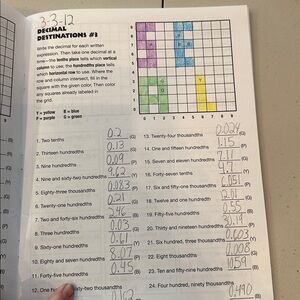 3-3-12
DECIMAL
DESTINATIONS #1
Write the decimal for each written
expression. Then take one decimal at a
time—the tenths place tells which vertical
column to use; the hundredths place tells
which horizontal row to use. Where the
row and column intersect, fill in the
square with the given color. Then color
any squares already labeled in
the grid.
Y = yellow B = blue
P = purple G = green
0 1 2 3 4 5 6 7 8 9
1. Two tenths 0.2 (G)
2. Thirteen hundredths 0.13 (G)
3. Nine hundredths 0.09 (P)
4. Nine and sixty-two hundredths 9.62 (Y)
5. Eighty-three thousandths 0.083 (P)
6. Twenty-one hundredths 0.21 (G)
7. Two and forty-six hundredths 2.46 (B)
8. Three hundredths 0.03 (G)
9. Sixty-one hundredths 0.61 (Y)
10. Eighty and seven hundredths 80.07 (P)
11. Forty-five hundredths 0.45 (B)
13. Twenty-four thousandths 0.024 (G)
14. One and fifteen hundredths 1.15
15. Seven and eleven hundredths 7.11
16. Forty-seven hundredths .47
17. Six and fifty-one thousandths
18. Twelve and one hundredth 12.01
19. Fifty-five hundredths 0.55
20. Thirty and nineteen hundredths 30.19
21. Six hundred, three thousandths 0.603
22. Eight thousandths 0.008
23. Ten and fifty-nine hundredths
24. Four hundred, ninety thousandths 0.490